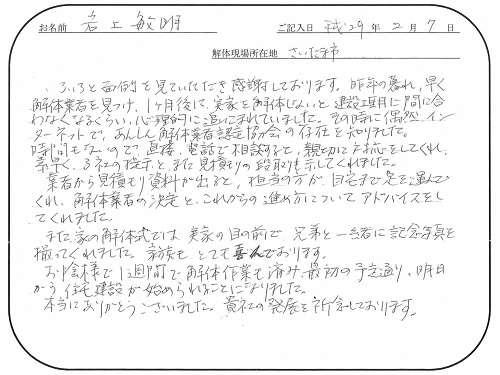 お名前 岩上敏明 ご記入日 平成29年 2月 7日
解体現場所在地 さいたま市
いろいろと面倒を見ていただき感謝しております。昨年の暮れ、早く
解体業者を見つけ、1ヶ月後に実家を解体しないと建設項目に間に合
わなくなるくらい、心理的に追いこまれていました。その時に偶然、イン
ターネットで、あんしん解体業者認定協会の存在を知りました。
時間もないので、直接、電話で相談すると、親切に対応をしてくれ、
素早く、3社の指示と、また見積もりの段取りも示してくれました。
業者から見積もり資料が出ると、担当の方が、自宅まで足を運んで
くれ、解体業者の決定と、これからの進め方についてアドバイスをし
てくれました。
また、家の解体式では、実家の目の前で、兄弟と一緒に記念写真を
撮ってくれました。家族も、とても喜んでおります。
お陰様で1週間で解体作業も済み、最初の予定通り、明日
から住宅建設が始められることになりました。
本当にありがとうございました。貴社の発展を祈念しております。